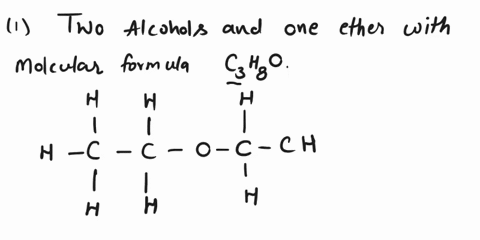 (1) Two Alcohols and one ether with
Molcular formula C₃H₈O.
H H H
H – C – C – O – C – CH
H H H